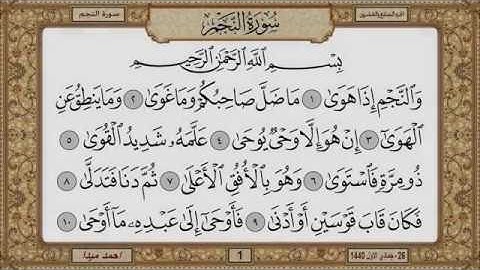 سورة النجم
سُورَةُ النَّجْمِ
بِسْمِ اللَّهِ الرَّحْمَٰنِ الرَّحِيمِ
وَالنَّجْمِ إِذَا هَوَىٰ ١ مَا ضَلَّ صَاحِبُكُمْ وَمَا غَوَىٰ ٢ وَمَا يَنطِقُ عَنِ
الْهَوَىٰ ٣ إِنْ هُوَ إِلَّا وَحْيٌ يُوحَىٰ ٤ عَلَّمَهُ شَدِيدُ الْقُوَىٰ ٥
ذُو مِرَّةٍ فَاسْتَوَىٰ ٦ وَهُوَ بِالْأُفُقِ الْأَعْلَىٰ ٧ ثُمَّ دَنَا فَتَدَلَّىٰ ٨
فَكَانَ قَابَ قَوْسَيْنِ أَوْ أَدْنَىٰ ٩ فَأَوْحَىٰ إِلَىٰ عَبْدِهِ مَا أَوْحَىٰ ١٠
26 - جمادى الأول 1440
1